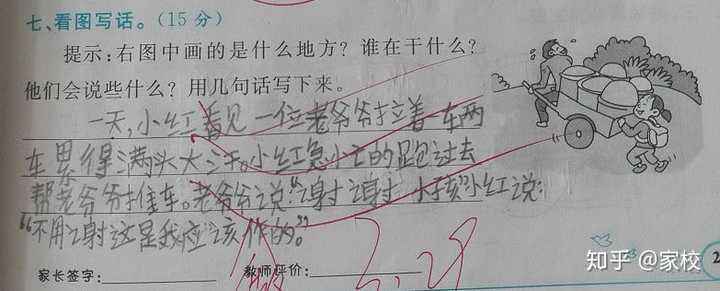 七、看图写话。(15分)
提示:右图中画的是什么地方?谁在干什么?
他们会说些什么?用几句话写下来。
一天,小红看见一位老爷爷拉着车两
车累得满头大汗。小红急忙的跑过去
帮老爷爷推车。老爷爷说:“谢谢小孩”小红说:
“不用谢这是我应该作的。”
家长签字: 教师评价:
知乎 @家校
2